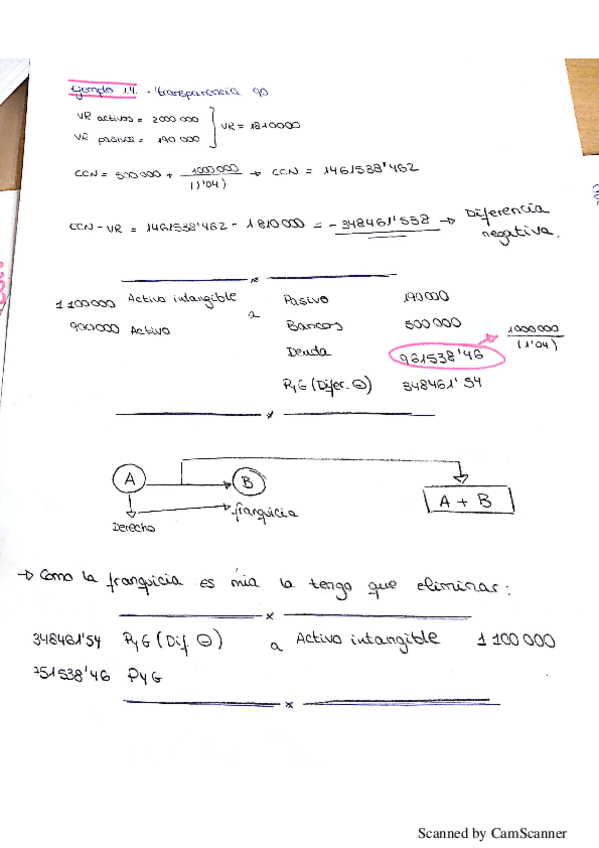 Ejemplo 1.4. - transparencia 90
VR activos = 2000 000
VR pasivos = 190 000
VR = 1810000
CCN = 500 000 + 1000 000 / (1'04) → CCN = 1461538'462
CCN - VR = 1461538'462 - 1810 000 = - 348461'538 → Diferencia negativa.
1 100000 Activo intangible a Pasivo 190 000
900000 Activo Bancos 500 000
Deuda 961538'46 1000 000 / (1'04)
PyG (Difer. ⊖) 348461'54
A B A + B
Derecho franquicia
→ Como la franquicia es mía la tengo que eliminar:
348461'54 PyG (Dif. ⊖) a Activo intangible 1 100 000
751538'46 PyG
Scanned by CamScanner